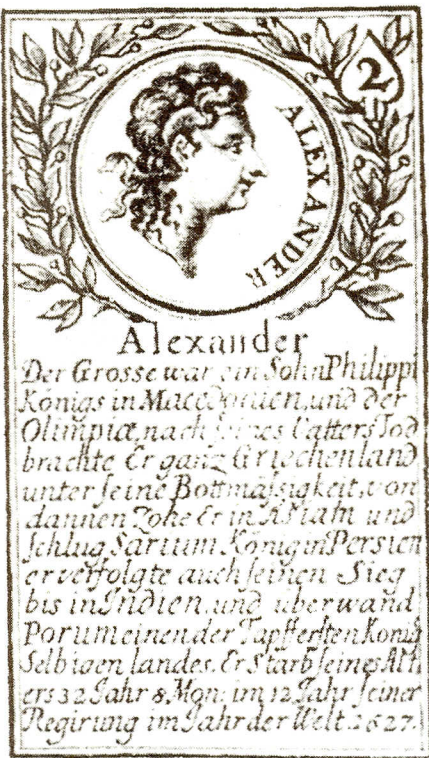 2
ALEXANDER
b
Alexander
Der Grosse war ein Sohn Philippi
Königs in Macedonien, und der
Olimpiæ, nach seines Vatters Tod
brachte Er ganz Griechenland
unter seine Bottmässigkeit, von
dannen Zohe Er in ASiam und
schlug Sarium König in Persien
er verfolgte auch seinen Sieg
bis in Indien, und überwand
Porum einen der Tapffersten König
Selbigen landes. Er Starb seines Alt
ers 32 Jahr 8. Mon: im 12 Jahr seiner
Regirung im Jahr der Welt. 2627.